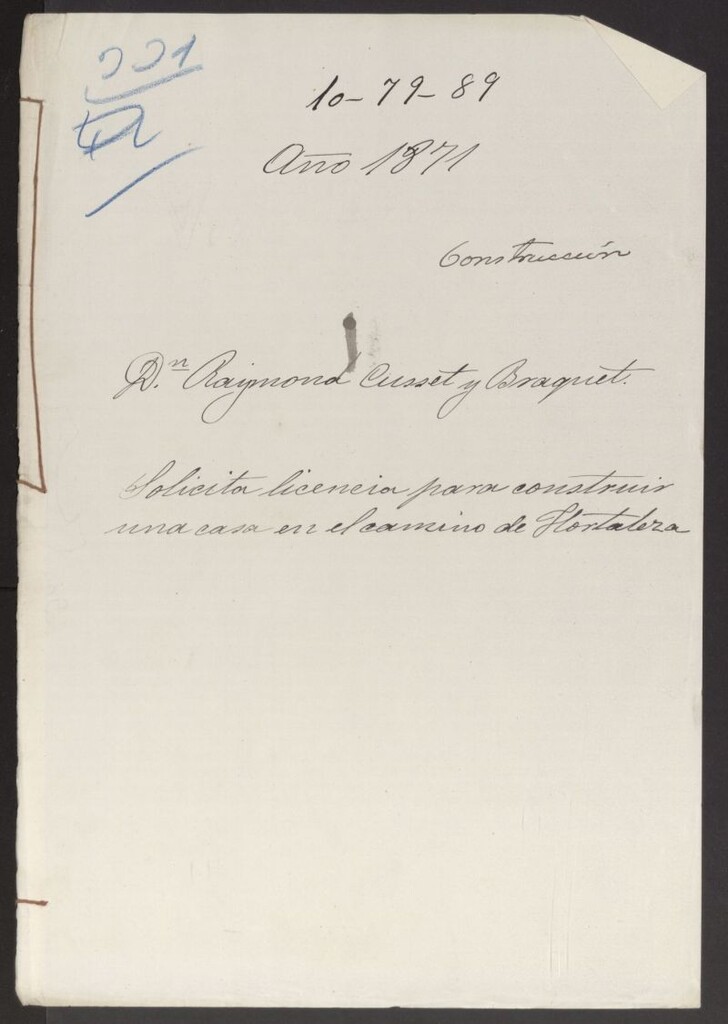 10-79-89
Año 1871
Construcción
Dn. Raymond Cusset y Braquet.
Solicita licencia para construir
una casa en el camino de Hortaleza